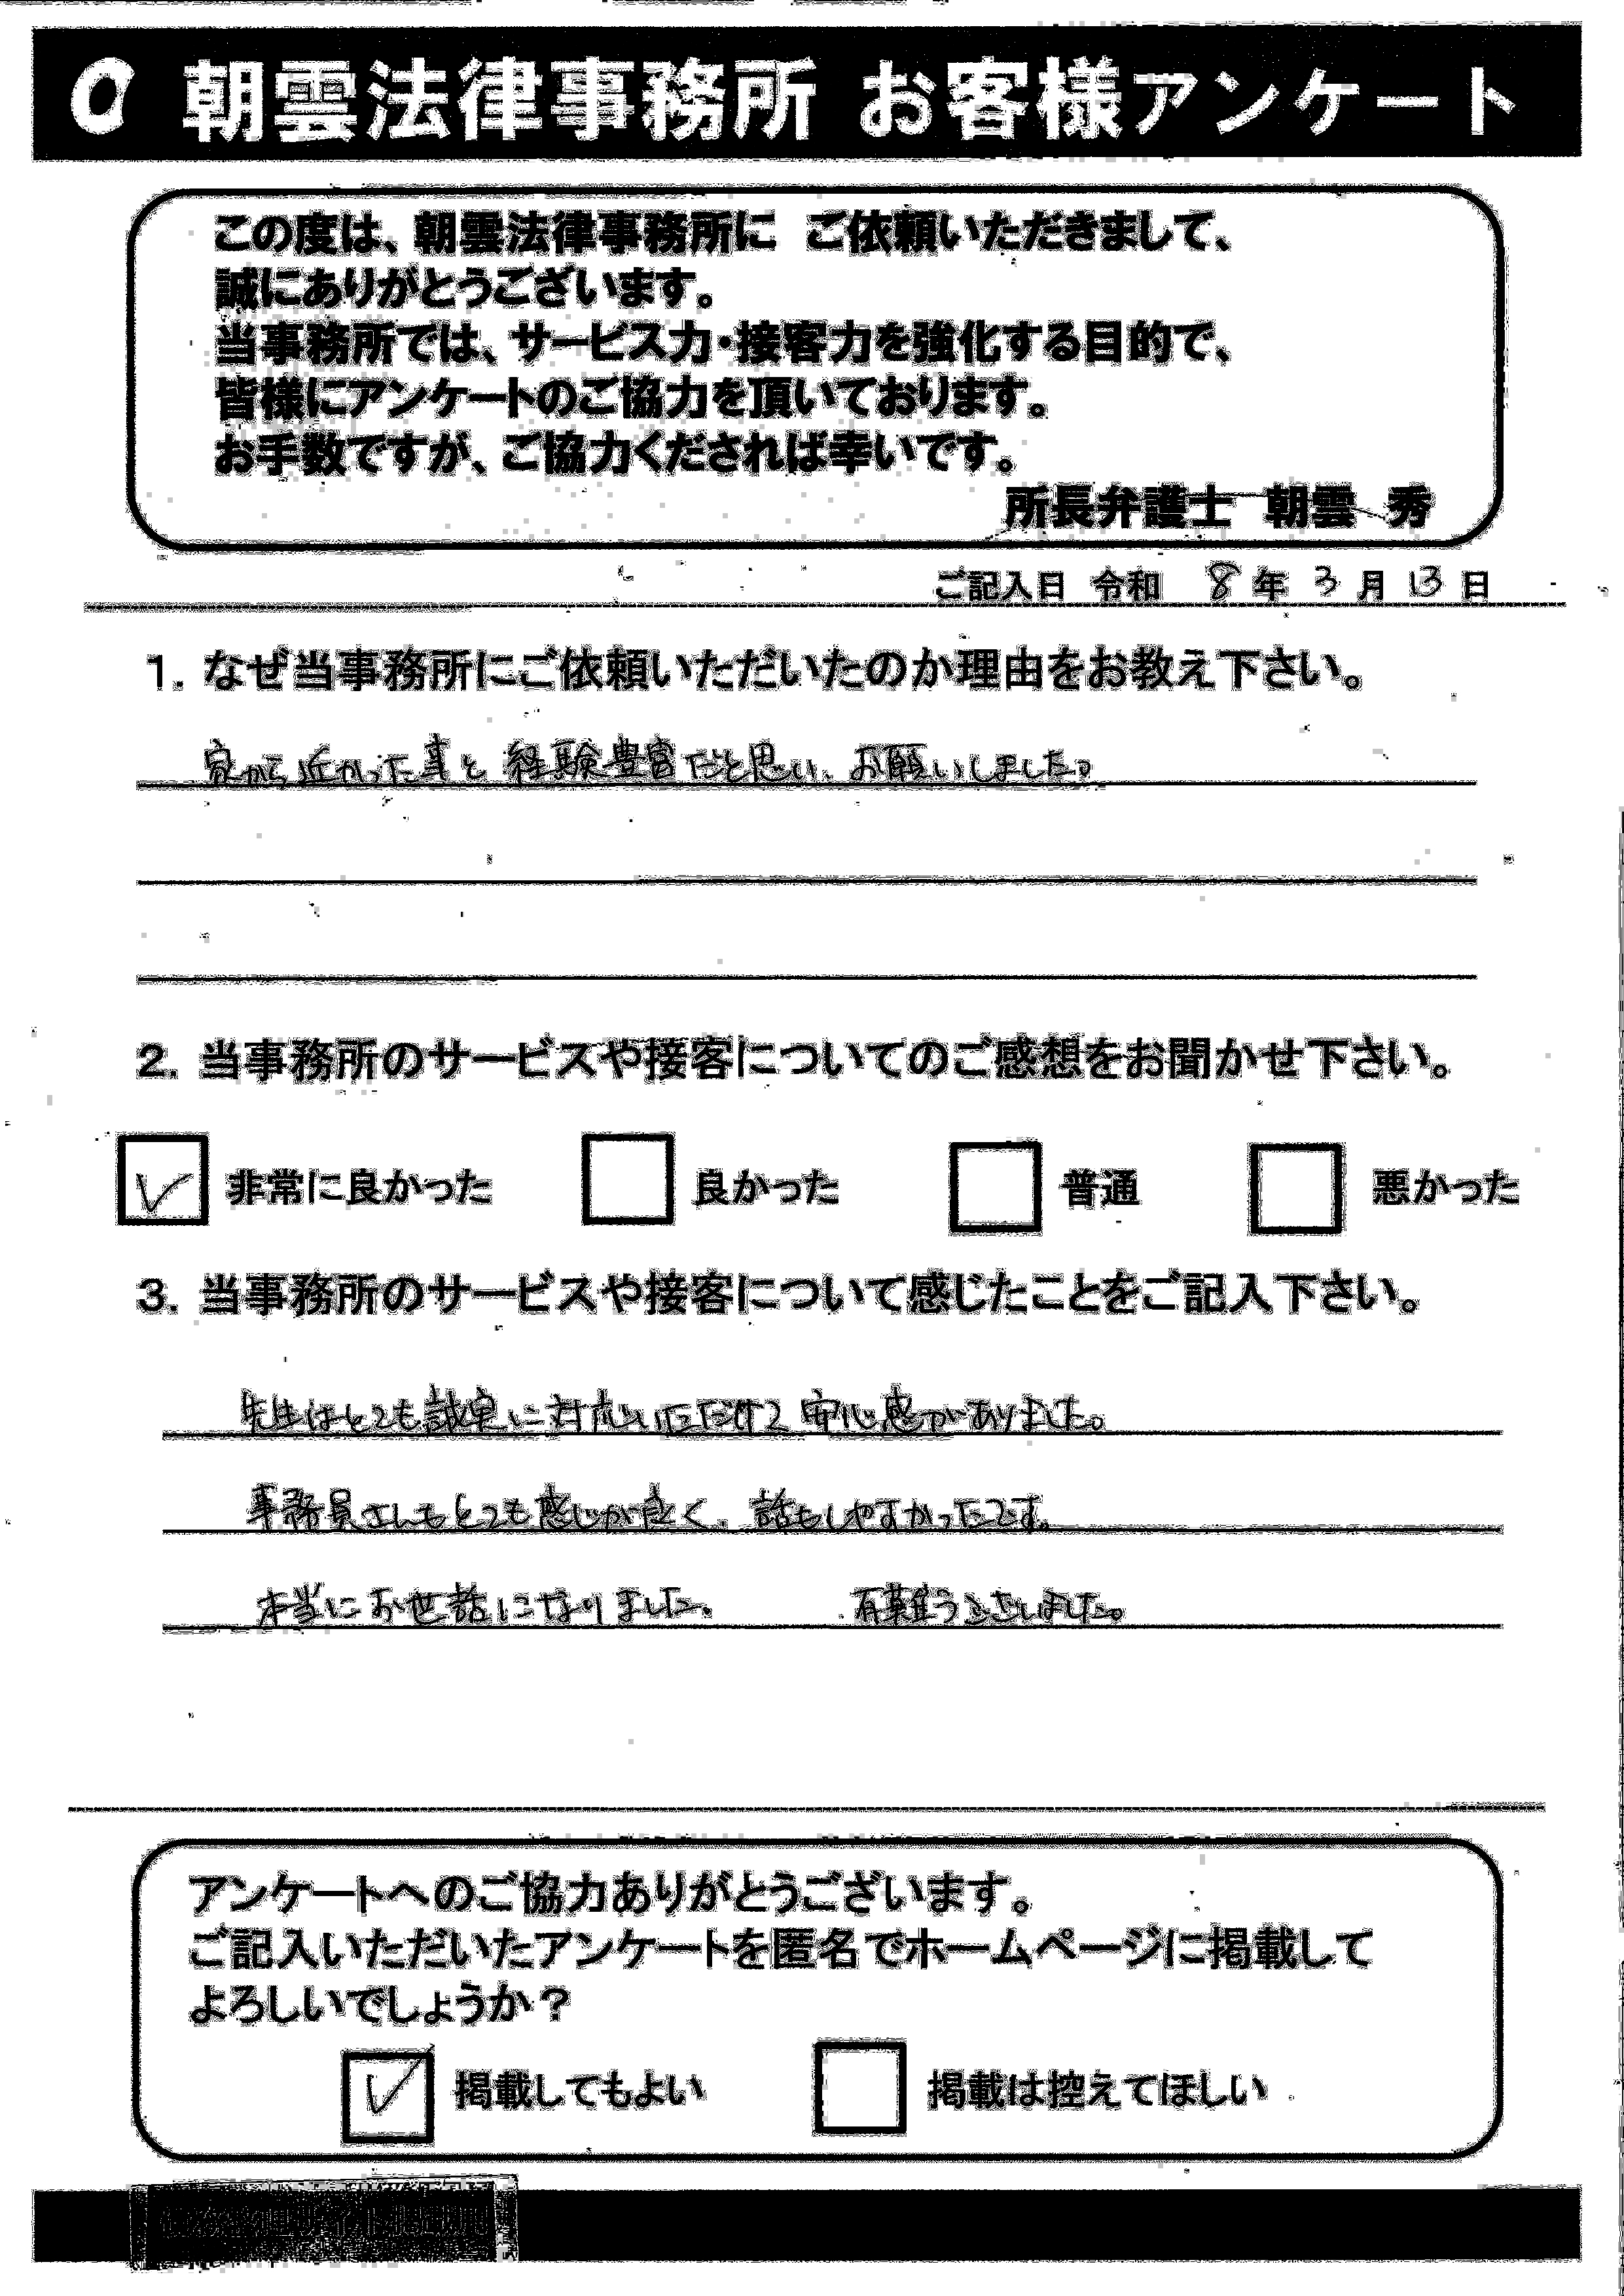 朝雲法律事務所 お客様アンケート
この度は、朝雲法律事務所に ご依頼いただきまして、
誠にありがとうございます。
当事務所では、サービス力・接客力を強化する目的で、
皆様にアンケートのご協力を頂いております。
お手数ですが、ご協力くだされば幸いです。
所長弁護士 朝雲 秀
ご記入日 令和 8 年 3 月 13 日
1. なぜ当事務所にご依頼いただいたのか理由をお教え下さい。
家から近かった事と 経験豊富だと思い、お願いしました。
2. 当事務所のサービスや接客についてのご感想をお聞かせ下さい。
☑ 非常に良かった □ 良かった □ 普通 □ 悪かった
3. 当事務所のサービスや接客について感じたことをご記入下さい。
先生はとても誠実に対応いただけて 安心感がありました。
事務員さんもとても感じが良く、話もしやすかったです。
本当にお世話になりました。 有難うございました。
アンケートへのご協力ありがとうございます。
ご記入いただいたアンケートを匿名でホームページに掲載して
よろしいでしょうか？
☑ 掲載してもよい □ 掲載は控えてほしい